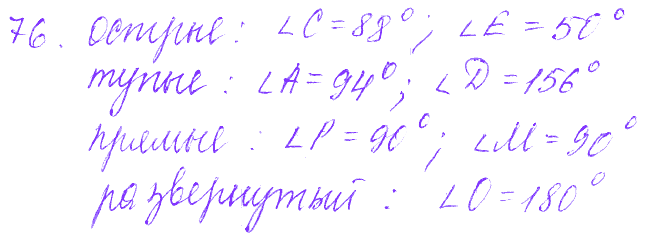 76. острые: ∠C = 88°; ∠E = 50°
тупые: ∠A = 94°; ∠D = 156°
прямые: ∠P = 90°; ∠M = 90°
развернутый: ∠O = 180°